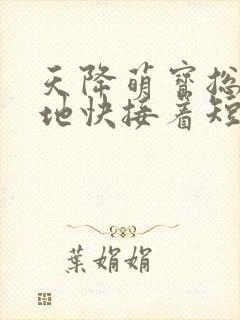 天降萌宝总
地快接着短
葉娟娟